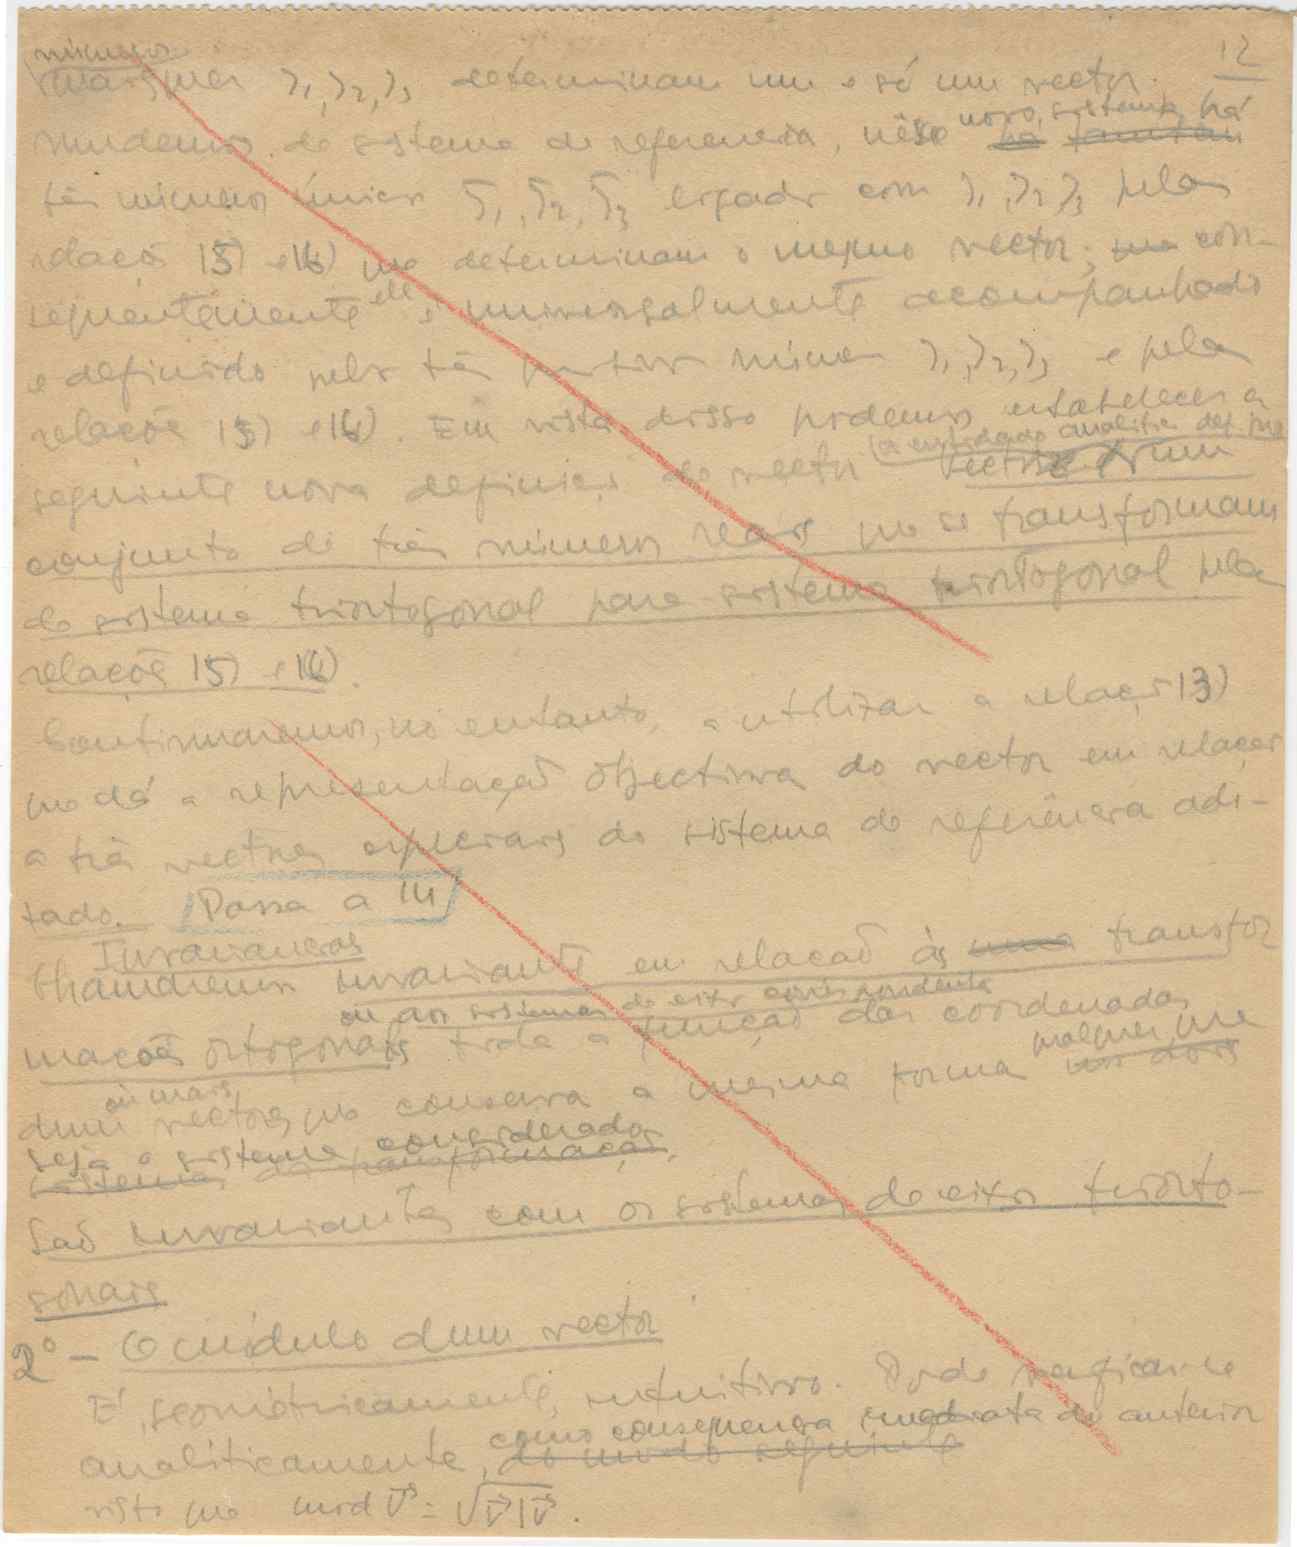 12
números
quaisquer λ₁, λ₂, λ₃ determinam um e só um vector.
Mudemos de sistema de referencia, nêsse novo sistema há
três números únicos λ̄₁, λ̄₂, λ̄₃ ligados com λ₁, λ₂, λ₃ pelas
relações 15) e 16) que determinam o mesmo vector; con-
sequentemente ele é universalmente acompanhado
e definido pelos três números λ₁, λ₂, λ₃ e pelas
relações 15) e 16). Em vista disso podemos estabelecer a
seguinte nova definição do vector (a entidade analitica def. por
conjunto de três números reais que se transformam
de sistema triortogonal para sistema triortogonal pelas
relações 15) e 16).
Continuaremos, no entanto, a utilizar a relação 13)
que dá a representação objectiva do vector em relação
a três vectores do sistema de referência adi-
tado. Passa a 14
Invariancias
Chamaremos invariante em relação às transfor
ou aos sistemas de eixos correspondentes
mações ortogonais toda a função das coordenadas
dum ou mais vectores que conserva a mesma forma qualquer que
seja o sistema considerado
sistemas da transformação.
São invariantes com os sistemas de eixos triorto-
gonais
2º - O módulo dum vector
É, geométricamente, intuitivo. Pode verificar-se
analíticamente, como consequencia imediata do anterior
do modo seguinte
visto que mod v⃗ = √v⃗|v⃗.